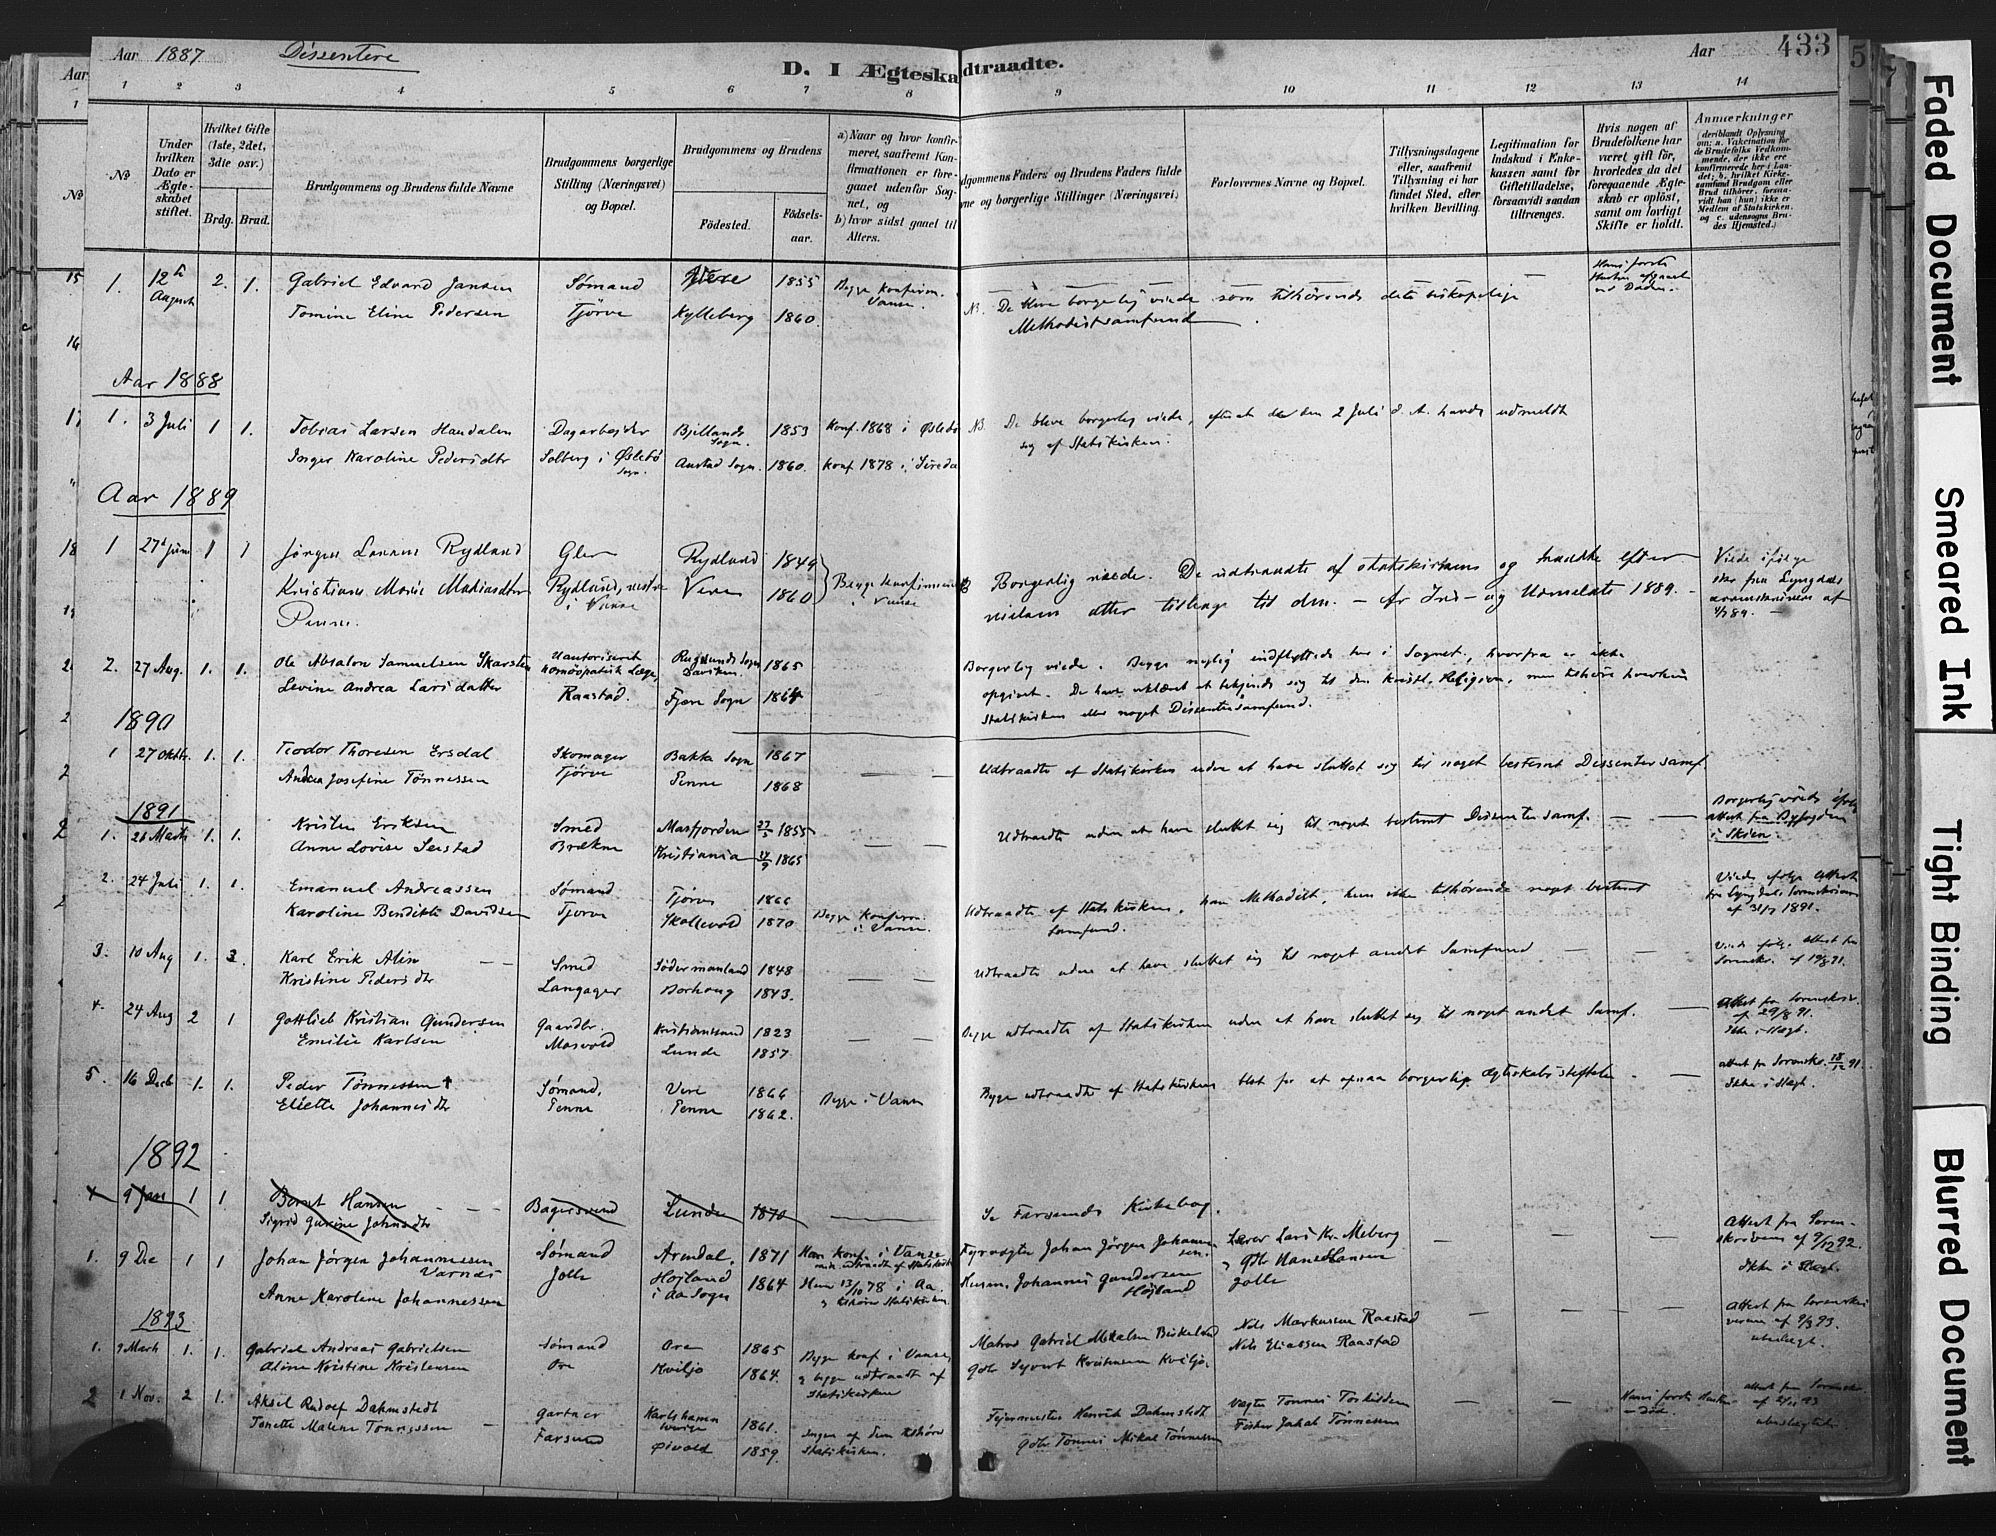 Aar 1887 Dissentere
D. I Ægteskabdtraadte.
Aar 433
1 2 3 4 5 6 7 8 9 10 11 12 13 14
No
Under hvilken Dato er Ægteskabet stiftet.
Hvilket Gifte (1ste, 2det, 3die osv.)
Brdg. Brud.
Brudgommens og Brudens fulde Navne
Brudgommens borgerlige Stilling (Næringsvei) og Bopæl.
Brudgommens og Brudens
Fødested.
Fødselsaar.
a) Naar og hvor konfirmeret, saafremt Konfirmationen er foregaaet udenfor Sognet, og
b) hvor sidst gaaet til Alters.
dgommens Faders og Brudens Faders fulde
ne og borgerlige Stillinger (Næringsvei)
Forlovernes Navne og Bopæl.
Tillysningsdagene eller, saafremt Tillysning ei har fundet Sted, efter hvilken Bevilling.
Legitimation for Indskud i Enkekassen samt for Giftetilladelse, forsaavidt saadan tiltrænges.
Hvis nogen af Brudefolkene har været gift før, hvorledes da det foregaaende Ægteskab er opløst, samt om lovligt Skifte er holdt.
Anmærkninger
(deriblandt Oplysning om: a. Vakcination for de Brudefolks Vedkommende, der ikke ere konfirmerede her i Landet; b. hvilket Kirkesamfund Brudgom eller Brud tilhører, forsaavidt han (hun) ikke er Medlem af Statskirken, og c. udensogns Brudes Hjemsted.)
1. 12te August 2. 1. Gabriel Edvard Jansen Sømand 1855 Begge konfirm.
Tomine Eline Pedersen Tjörve Kylleberg 1860. Vanse.
N. De bleve borgerlig viede som tilhørende det biskopelige
Methodistsamfund.
Hans første Hustru afgaaet ved Døden.
Aar 1888
1. 3 Juli 1 1. Tobias Larsen Haudalen Dagarbejder Bjellands Sogn. 1853 Konf. 1868 i Øslebø
Inger Karoline Pedersdtr Solberg i Øslebø Sogn. Aaustad Sogn. 1860. Konf 1878 i Sireda
NB. De bleve borgerlig viede, efterat de den 2 Juli d. A. havde udmeldt
sig af Statskirken.
Aar 1889
1 27d Juni 1 1 Jørgen Rydland Rydland 1849 Begge konfirmerede
Kristiane Marie Mathiasdtr Rydland, vestre Vere 1860 i Vanse
Penne. i Vanse
Borgerlig viede. De udtraadte af Statskirken og traadte efter
vielsen atter tilbage til den. – Cfr Ind- og Udmeldte 1889. –
Viede ifølge
fra Lyngdals
Sorenskriveri af
4/7 89.
2. 27 Aug. 1. 1. Ole Absalon Samuelsen Skarsten Uautoriseret homøopatisk Læge, Rugsunds Sogn Daviken. 1865
Levine Andrea Larsdatter Raastad. Fjære Sogn 1864
Borgerlig viede. Begge nylig indflyttede her i Sognet, hvorfra er ikke
opgivet. De have erklæret at bekjende sig til den kristl. Religion, men tilhøre hverken
Statskirken eller noget Dissentersamfund.
1890
1 27 Oktbr. 1. 1. Teodor Thoresen Ersdal Skomager Bakke Sogn 1867
Andrea Josefine Tønnessen Tjörve Penne 1868
Udtraadte af Statskirken uden at have sluttet sig til noget bestemt Dissentersamf.
1891
1. 26 Marts 1. 1. Kristen Eriksen Smed Masfjorden 27/5 1855
Anne Lovise Seistad Brækne Kristiania 14/9 1865
Udtraadte uden at have sluttet sig til noget bestemt Dissentersamf.
Borgerlig viede ifølge attest fra Byfogden i Skien.
2. 24 Juli 1. 1. Emanuel Andreassen Sømand Tjörve 1866
Karoline Bendikte Davidsen Tjørve Skollevold 1870 Begge konfirm. i Vanse.
Udtraadte af Statskirken, han Methodist, hun ikke tilhørende noget bestemt
Samfund.
Viede ifølge Attest fra Lyngdals Sorenskriveri af 31/7 1891.
3. 10 Aug 1. 3. Karl Erik Alin Smed Södermanland 1848
Kristine Pedersdtr Langager Borhaug 1843.
Udtraadte uden at have sluttet sig til noget andet Samfund
Viede ifølge Attest fra Sorenskr. af 19/8 91.
4. 24 Aug 2 1 Gottlieb Kristian Gundersen Gaardbr. Kristianssand 1823
Emilie Karlsen Mosvold Lunde 1857
Begge udtraadte af Statskirken uden at have sluttet sig til noget andet Samf.
Attest fra Sorenskr. af 29/8 91.
Ikke i Slægt.
5. 16 Decb 1. 1. Peder Tønnessen † Sømand, Vere 1866
Eliette Johannesdtr Penne Penne 1862. Begge i Vanse
Begge udtraadte af Statskirken blot for at opnaa borgerlig Ægteskabsstiftelse.
Attest fra Sorenskr. 18/12 91.
Ikke i Slægt.
1892
9 Jan 1 1. Bernt Hansen Bagersvend Lunde 1870
Sigrid Gurine Johnsdtr
Se Farsunds Kirkebog.
1. 9 De 1 1 Johan Jörgen Johannessen Varnes Sømand Arendal, 1871 Han konf. i Vanse
men udtraadt af Statskirk
Anne Karoline Johannessen Jolle Højland i Aa Sogn 1864 Hun 13/10 78 i Aa.
og tilhører Statskirken
Fyrvogter Johan Jörgen Johannessen Lærer Lars Kr. Meberg
Husm. Johannes Gundersen Högland Gdbr Hans Hansen Jolle
Attest fra Sorenskriveren af 9/12 92.
Ikke i Slægt.
1893
1. 9 Marts 1. 1. Gabriel Andreas Gabrielsen Sømand Ore 1865 Begge konf i Vanse,
Aline Kristine Kristensen Ore Kviljo 1864. og begge udtraadt af
Statskirken
Matros Gabriel Mikalsen Birkeland Nils Markussen Raastad
Gdbr Syvert Kristensen Kviljo. Nils Eliassen Raastad
Attest fra Sorenskriveren af 9/3 93.
ubeslægt.
2 1 Nov. 2 1. Aksel Rudolf Dahmstedt Gartner Karlshamn Sverige 1861. Ingen af dem tilhører
Tonette Malene Tönnessen Farsund Öivold 1859. Statskirken.
Fejermester Henrik Dahmstedt Vagter Tönnes Torkildsen
Gdbr Tönnes Mikal Tönnessen Fisker Jakob Tönnessen
Hans første Hustru Død.
Attest fra Sorenskr. af 2/11 93
ubeslægtede
Faded Document
Smeared Ink
Tight Binding
Blurred Document